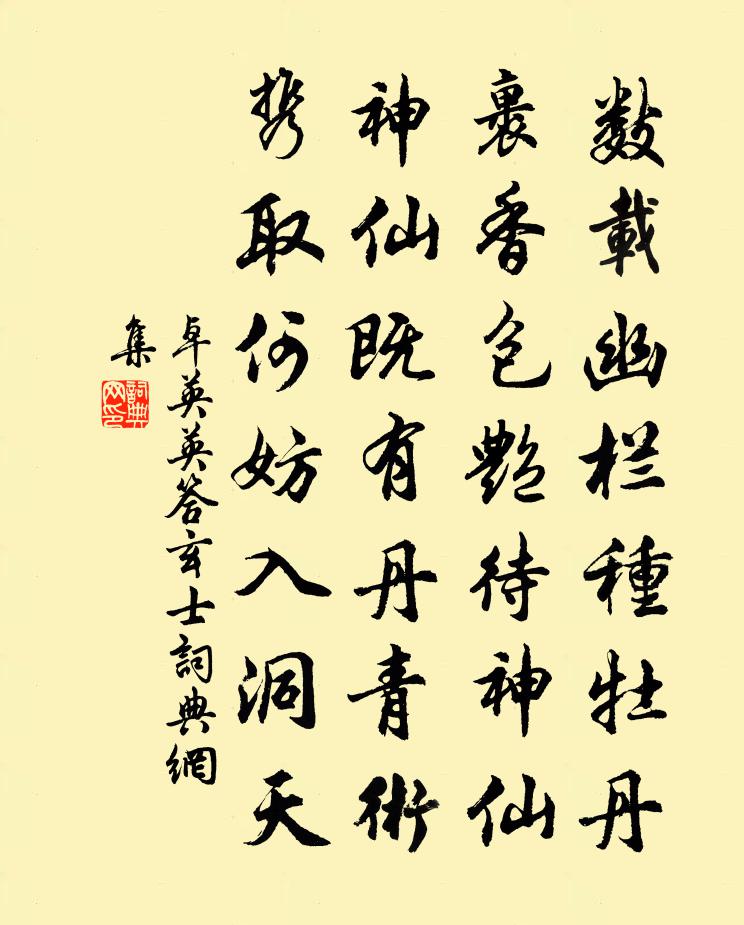 数載幽栏種牡丹
裹香包艷待神仙
神仙既有丹青術
携取何妨入洞天
卓英英答玄士詞典網
集
詞典网印